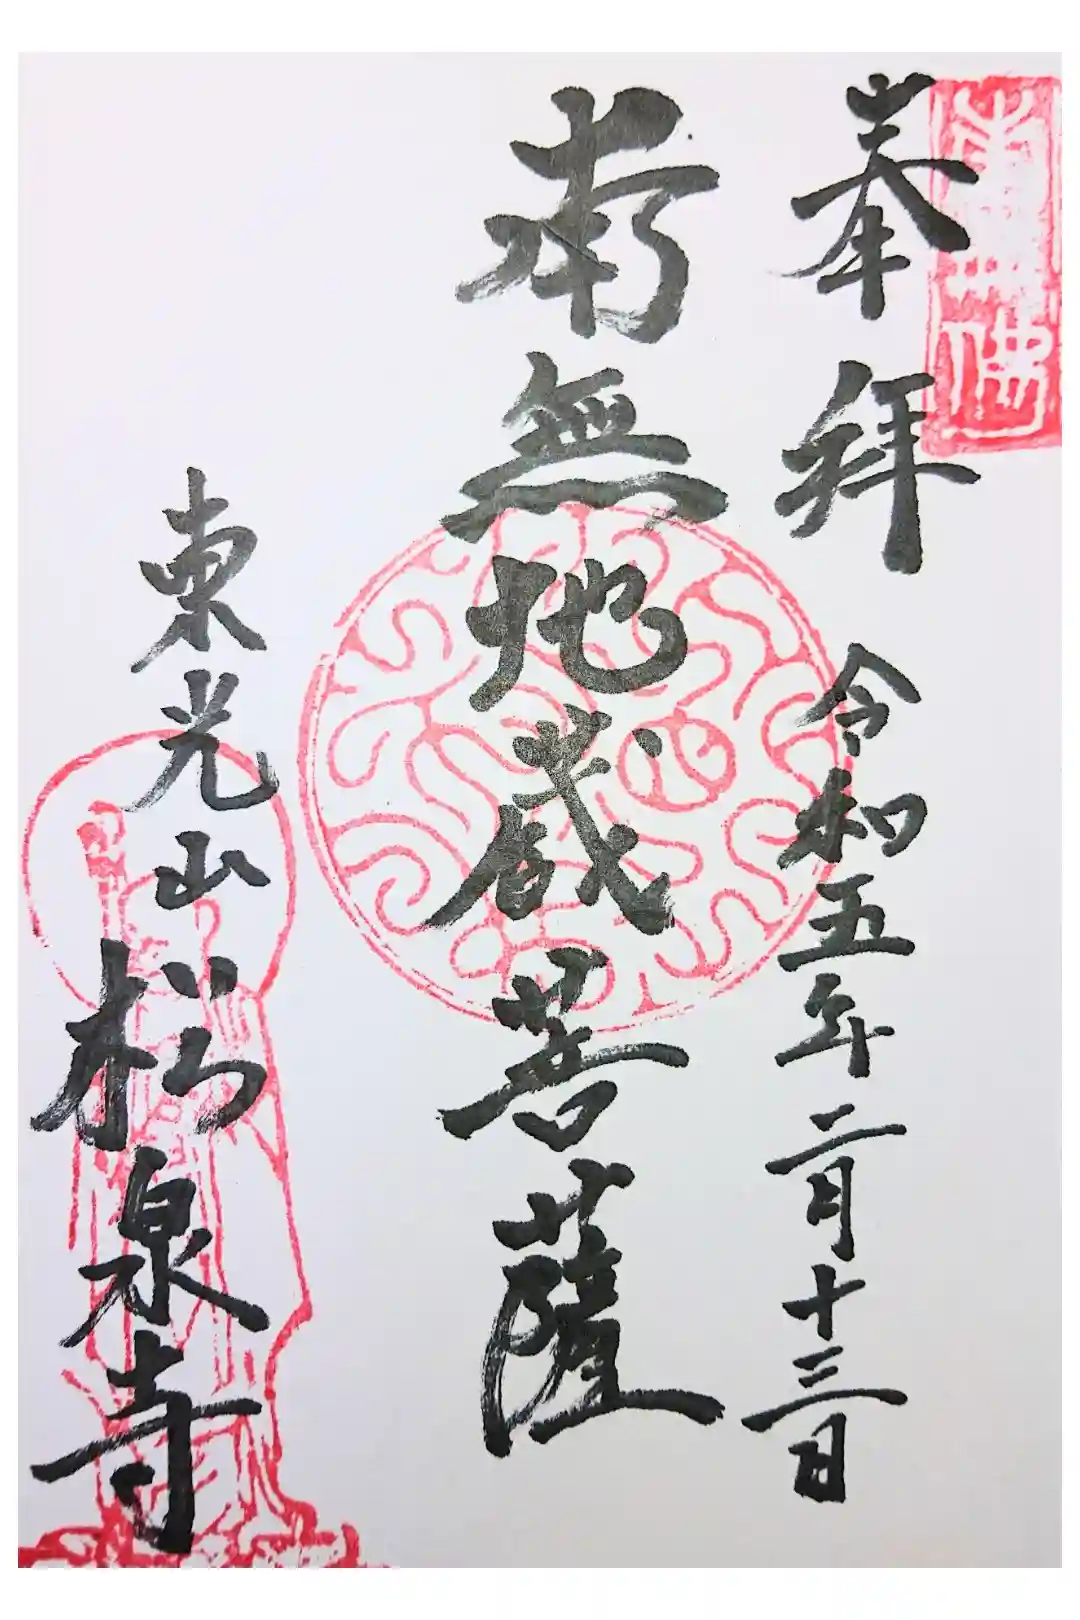 奉拜
令和五年二月十三日
南無地蔵菩薩
東光山
松泉寺